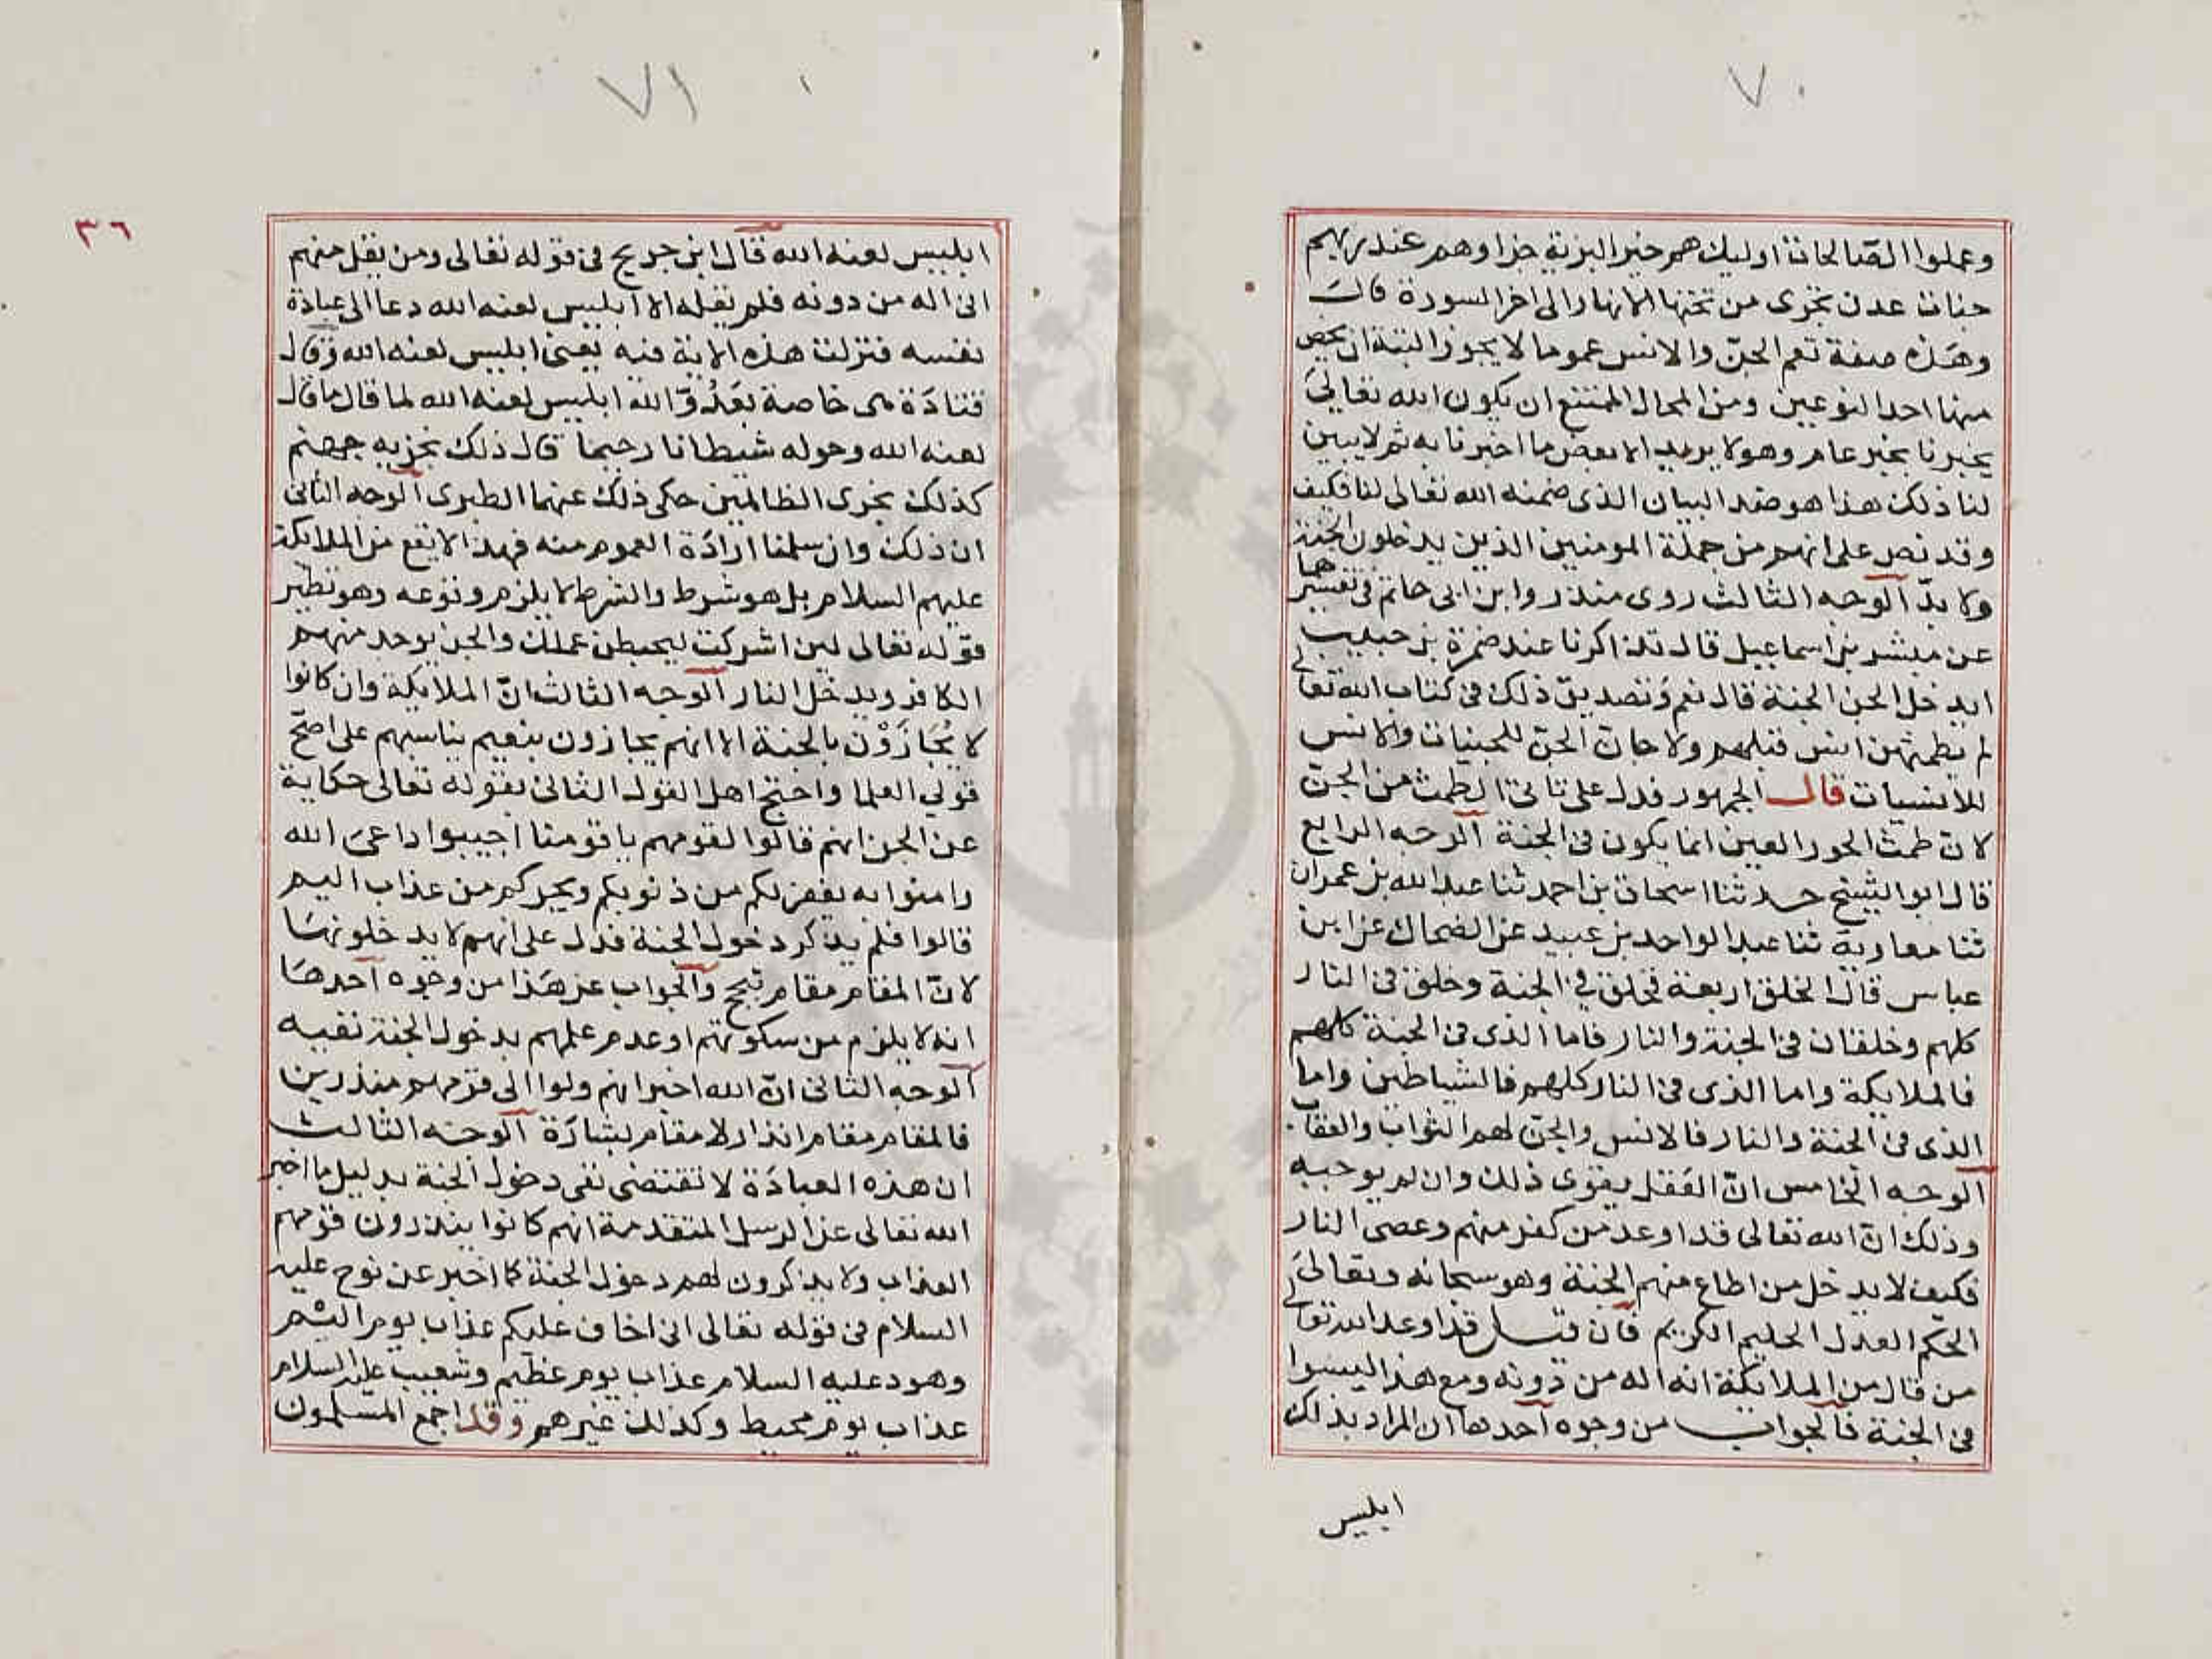 ٧٠
وعملوا الصالحات اوليك هم خير البرية جزاوهم عند ربهم
جنات عدن تجرى من تحتها الانهار الى اخر السورة قال
وهذه صفة تعم الجن والانس عموما لا يجوز البتة ان يخص
منها احد النوعين ومن المحال الممتنع ان يكون الله تعالى
يخبرنا بخبر عام وهو لا يريد الا بعض ما اخبرنا به ثم لا يبين
لنا ذلك هذا هو ضد البيان الذى ضمنه الله تعالى لنا فكيف
وقد نص على انهم من جملة المومنين الذين يدخلون الجنة
ولا بد الوجه الثالث روى منذر وابن ابى حاتم فى تفسيرها
عن مبشر بن اسماعيل قال تذاكرنا عند ضمرة بن حبيب
ايدخل الجن الجنة قال نعم وتصديق ذلك فى كتاب الله تعالى
لم يطمثهن انس قبلهم ولا جان الجن للجنيات والانس
للانسيات قال الجمهور فدل على تاتى الطمث من الجن
لان طمث الحور العين انما يكون فى الجنة الوجه الرابع
قال ابو الشيخ حدثنا اسحاق بن احمد ثنا عبد الله بن عمران
ثنا معاوية ثنا عبد الواحد بن عبيد عن الضحاك عن ابن
عباس قال الخلق اربعة فخلق فى الجنة وخلق فى النار
كلهم وخلقان فى الجنة والنار فاما الذى فى الجنة كلهم
فالملايكة واما الذى فى النار كلهم فالشياطين واما
الذى فى الجنة والنار فالانس والجن لهم الثواب والعقاب
الوجه الخامس ان العقل يقوى ذلك وان لم يوجبه
وذلك ان الله تعالى قد اوعد من كفر منهم وعصى النار
فكيف لا يدخل من اطاع منهم الجنة وهو سبحانه وتعالى
الحكم العدل الحليم الكريم فان قيل قد اوعد الله تعالى
من قال من الملايكة انه اله من دونه ومع هذا ليسوا
فى الجنة فالجواب من وجوه احدها ان المراد بذلك
ابليس
٧١
٣٦
ابليس لعنه الله قال ابن جريج فى قوله تعالى ومن يقل منهم
انى اله من دونه فلم يقله الا ابليس لعنه الله دعا الى عبادة
نفسه فنزلت هذه الاية فيه يعنى ابليس لعنه الله وقال
قتادة هى خاصة بعدو الله ابليس لعنه الله لما قال ما قال
لعنه الله وحوله شيطانا رجيما قال ذلك نجزيه جهنم
كذلك نجزى الظالمين حكى ذلك عنهما الطبرى الوجه الثانى
ان ذلك وان سلمنا ارادة العموم منه فهذا لا يقع من الملايكة
عليهم السلام بل هو شرط والشرط لا يلزم وقوعه وهو نظير
قوله تعالى لين اشركت ليحبطن عملك والجن يوجد منهم
الكافر ويدخل النار الوجه الثالث ان الملايكة وان كانوا
لا يجازون بالجنة الا انهم يجازون بنعيم يناسبهم على اصح
قولى العلما واحتج اهل القول الثانى بقوله تعالى حكاية
عن الجن انهم قالوا لقومهم يا قومنا اجيبوا داعى الله
وامنوا به يغفر لكم من ذنوبكم ويجركم من عذاب اليم
قالوا فلم يذكر دخول الجنة فدل على انهم لا يدخلونها
لان المقام مقام تبجح والجواب عن هذا من وجوه احدها
انه لا يلزم من سكوتهم او عدم علمهم بدخول الجنة نفيه
الوجه الثانى ان الله اخبر انهم ولوا الى قومهم منذرين
فالمقام مقام انذار لا مقام بشارة الوجه الثالث
ان هذه العبادة لا تقتضى نفى دخول الجنة بدليل ما اخبر
الله تعالى عن الرسل المتقدمة انهم كانوا ينذرون قومهم
العذاب ولا يذكرون لهم دخول الجنة كما اخبر عن نوح عليه
السلام فى قوله تعالى انى اخاف عليكم عذاب يوم اليم
وهود عليه السلام عذاب يوم عظيم وشعيب عليه السلام
عذاب يوم محيط وكذلك غيرهم وقد اجمع المسلمون